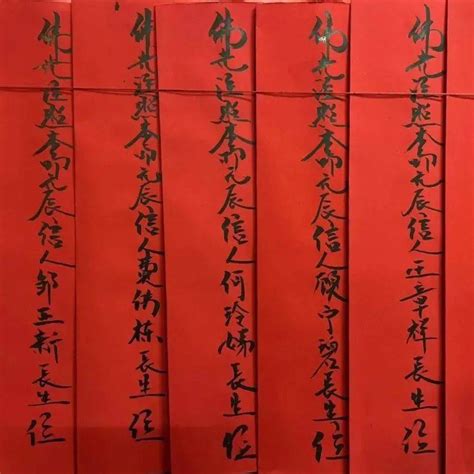 佛光注照本命元辰信人章祥長生位
佛光注照本命元辰信人顾宁長生位
佛光注照本命元辰信人何玲娣長生位
佛光注照本命元辰信人伟栋長生位
佛光注照本命元辰信人邹玉新長生位